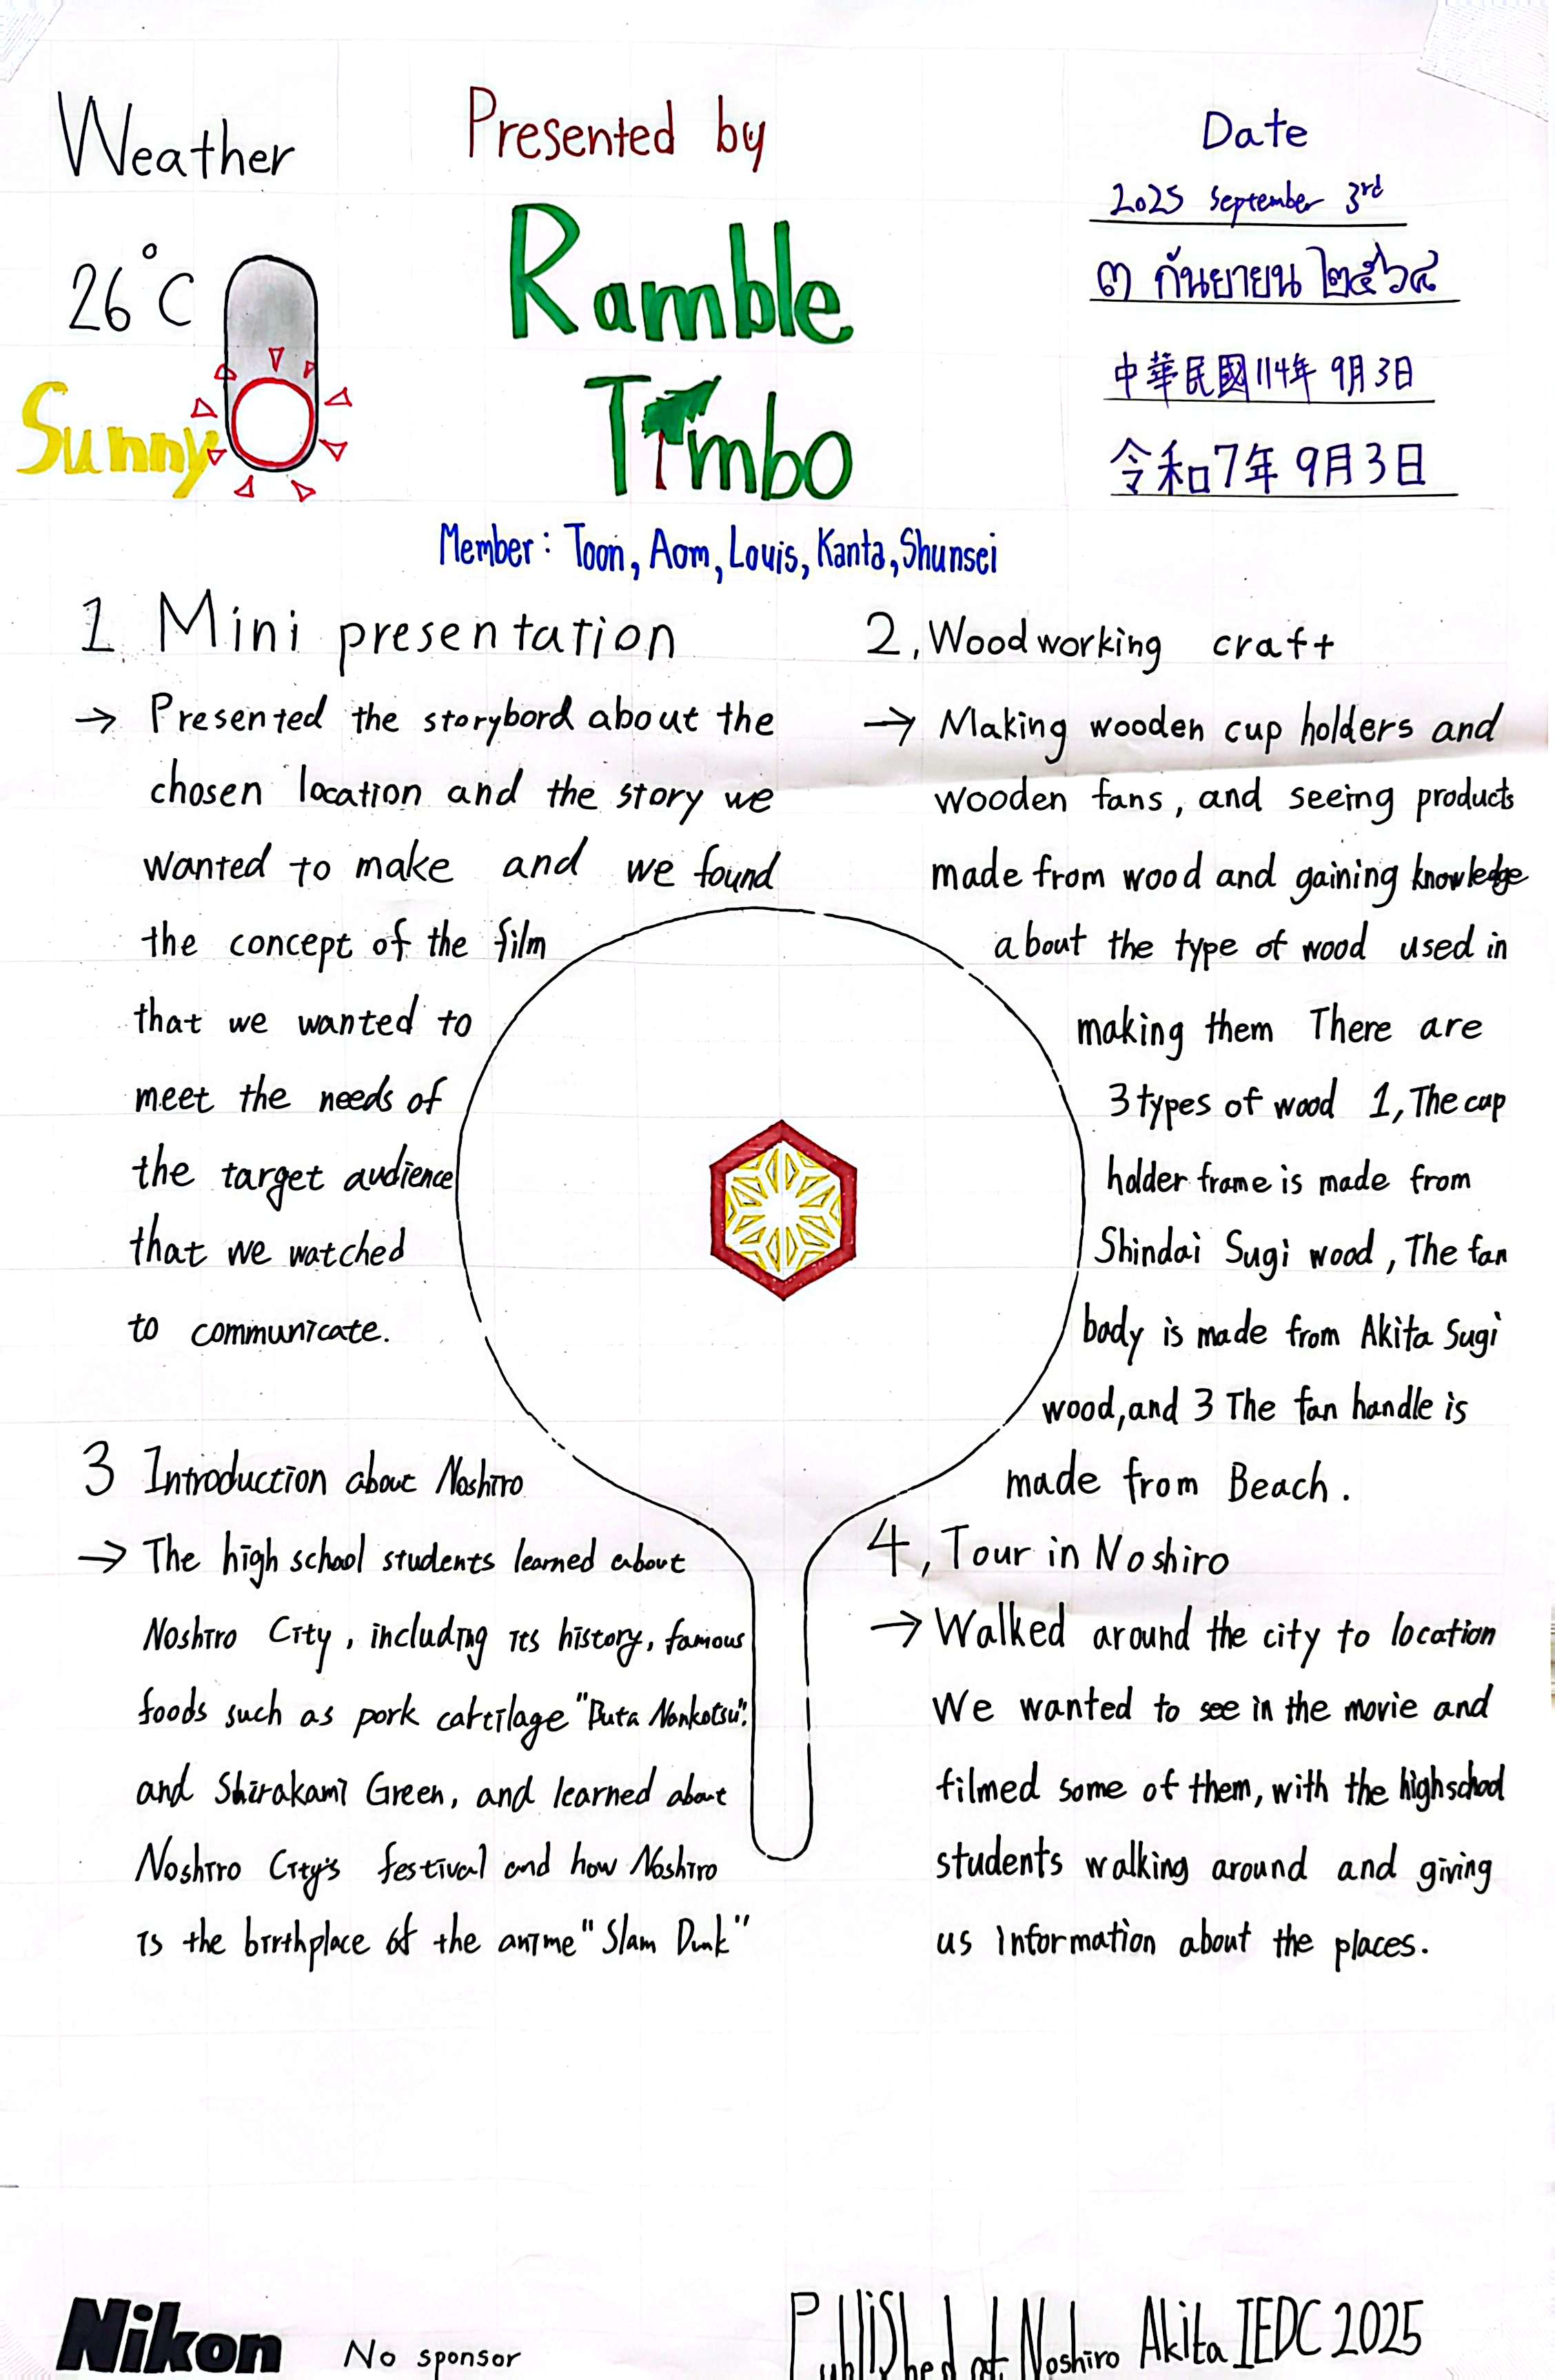 Weather
26°C
Sunny
Presented by
Ramble
Timbo
Date
2025 September 3rd
๓ กันยายน ๒๕๖๘
中華民國114年 9月3日
令和7年 9月3日
Member : Toon, Aom, Louis, Kanta, Shunsei
1 Mini presentation
→ Presented the storybord about the
chosen location and the story we
wanted to make and we found
the concept of the film
that we wanted to
meet the needs of
the target audience
that we watched
to communicate.
2, Woodworking craft
→ Making wooden cup holders and
wooden fans, and seeing products
made from wood and gaining knowledge
about the type of wood used in
making them There are
3 types of wood 1, The cup
holder frame is made from
Shindai Sugi wood, The fan
body is made from Akita Sugi
wood, and 3 The fan handle is
made from Beach.
3 Introduction about Noshiro
→ The high school students learned about
Noshiro City, including its history, famous
foods such as pork cartilage "Buta Nankotsu".
and Shirakami Green, and learned about
Noshiro City's festival and how Noshiro
is the birthplace of the anime "Slam Dunk"
4, Tour in Noshiro
→ Walked around the city to location
We wanted to see in the movie and
filmed some of them, with the highschool
students walking around and giving
us information about the places.
Nikon
No sponsor
Published at Noshiro Akita IEDC 2025